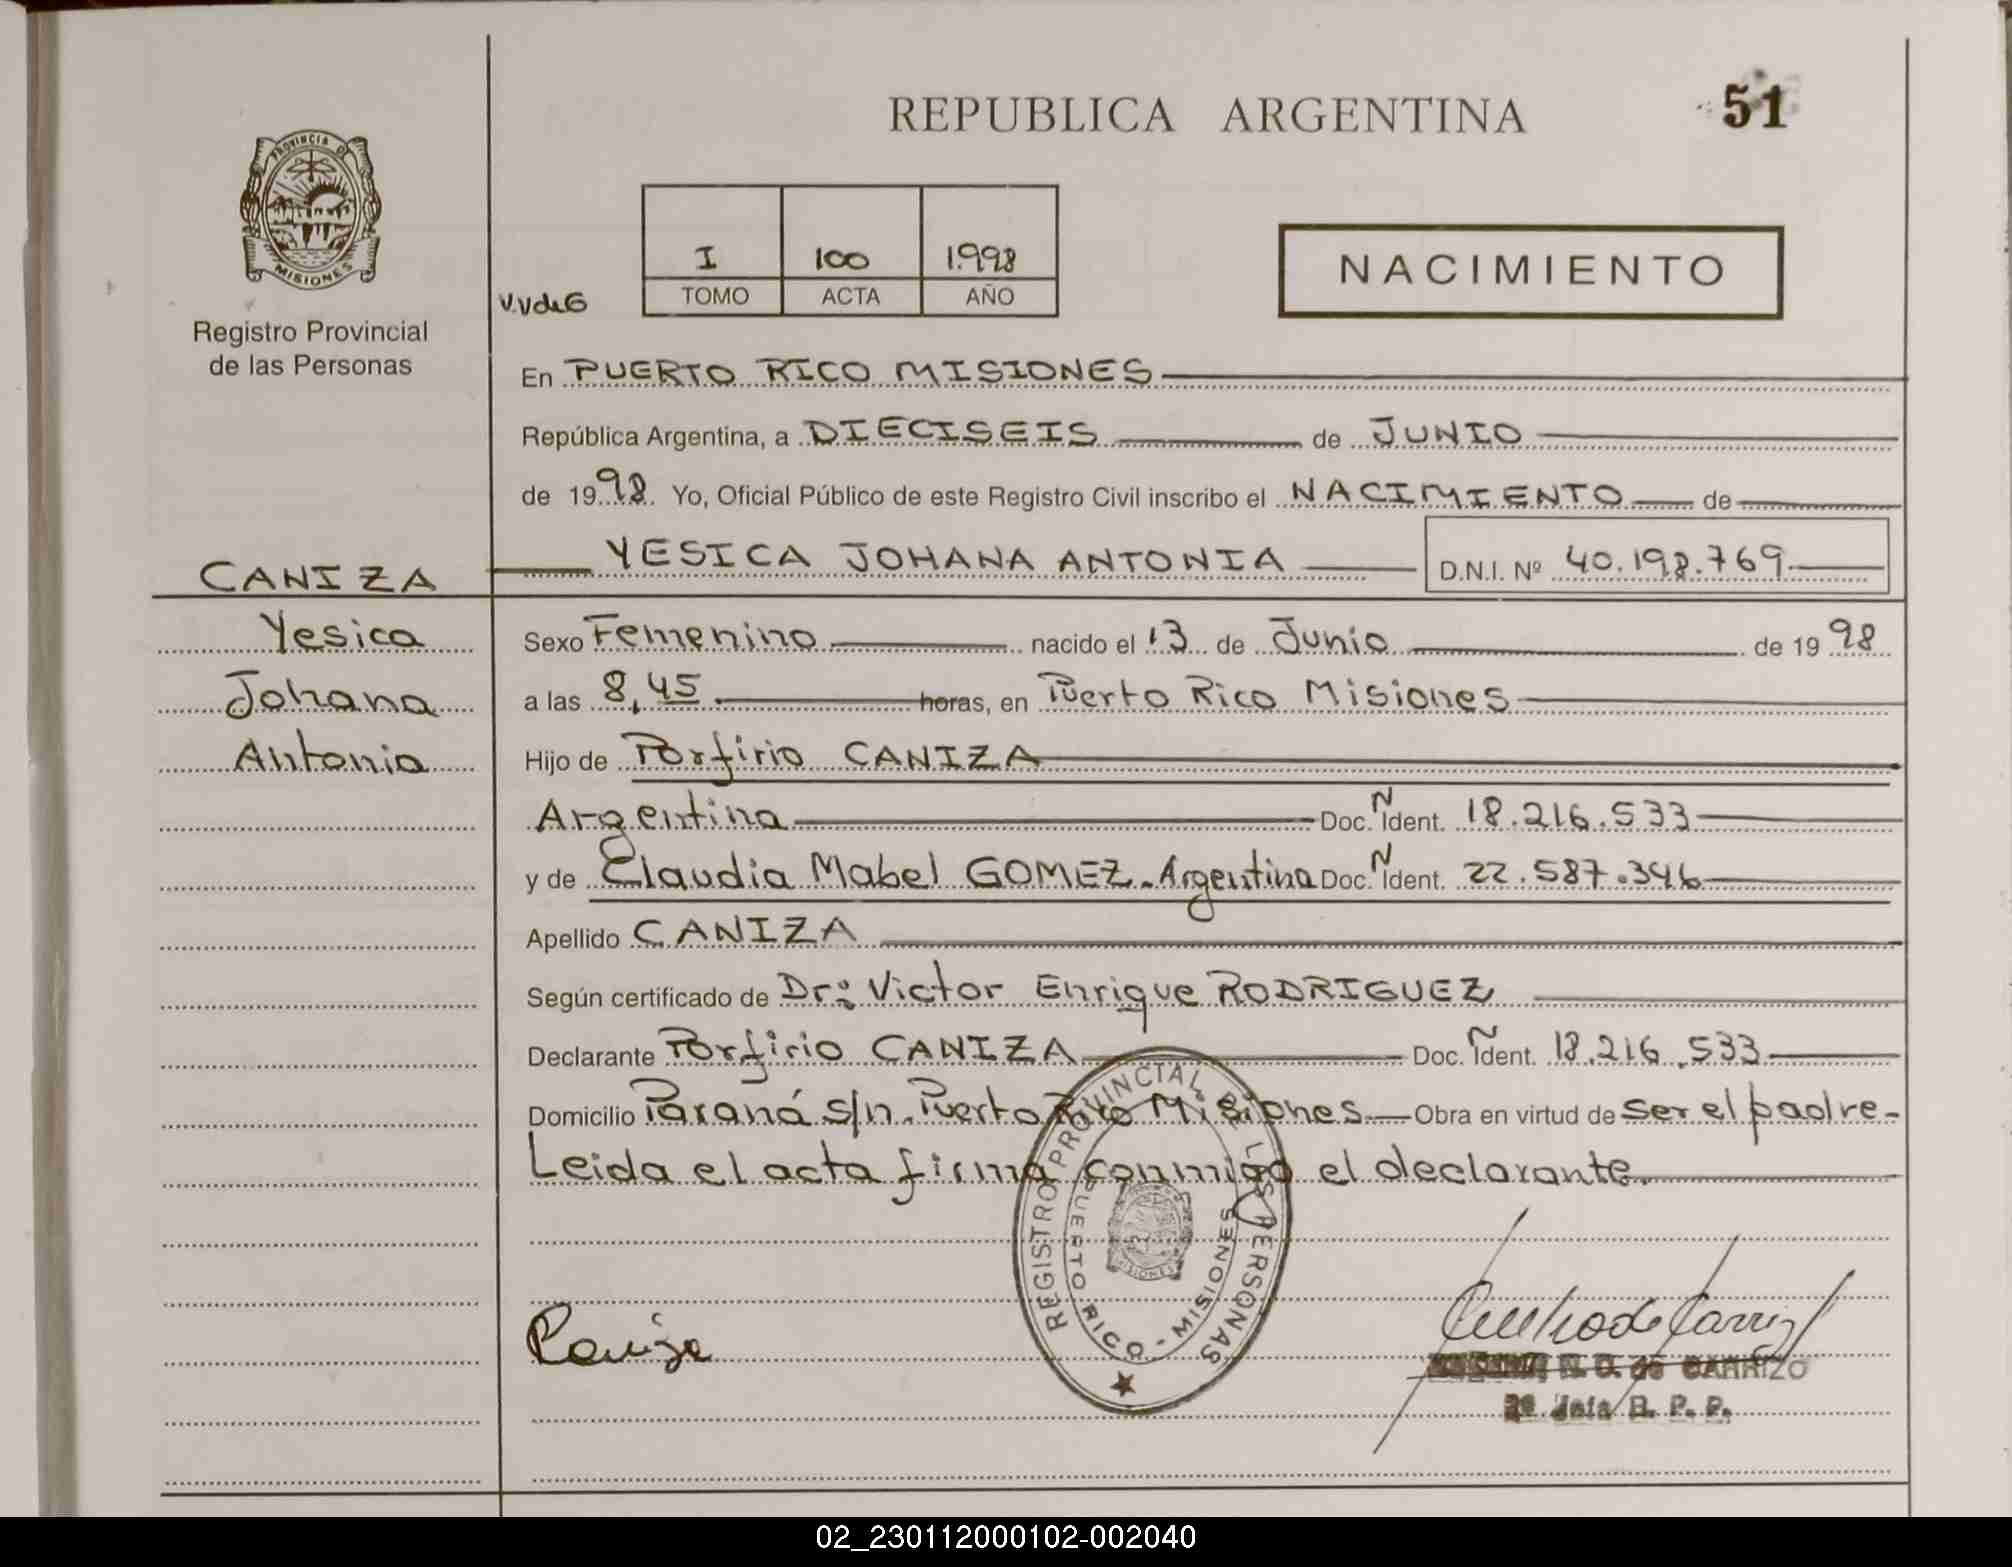 REPUBLICA ARGENTINA
51
PROVINCIA DE
MISIONES
Registro Provincial
de las Personas
V.V de G
I 100 1.998
TOMO ACTA AÑO
NACIMIENTO
En PUERTO RICO MISIONES
República Argentina, a DIECISEIS de JUNIO
de 19 98 Yo, Oficial Público de este Registro Civil inscribo el NACIMIENTO de
CANIZA YESICA JOHANA ANTONIA D.N.I. Nº 40.198.769
Yesica Sexo Femenino nacido el 13 de Junio de 19 98
Johana a las 8,45 horas, en Puerto Rico Misiones
Antonia Hijo de Porfirio CANIZA
Argentina Doc. Ñ Ident. 18.216.533
y de Claudia Mabel GOMEZ. Argentina Doc. Ñ Ident. 22.587.346
Apellido CANIZA
Según certificado de Dr: Victor Enrique RODRIGUEZ
Declarante Porfirio CANIZA Doc. Ñ Ident. 18.216.533
Domicilio Paraná s/n. Puerto Rico Misiones Obra en virtud de ser el padre-
Leida el acta firma conmigo el declarante.
REGISTRO PROVINCIAL DE LAS PERSONAS
PUERTO RICO - MISIONES
MISIONES
Caniza
N. O. de CARRIZO
2º Jefa R. P. P.
02_230112000102-002040